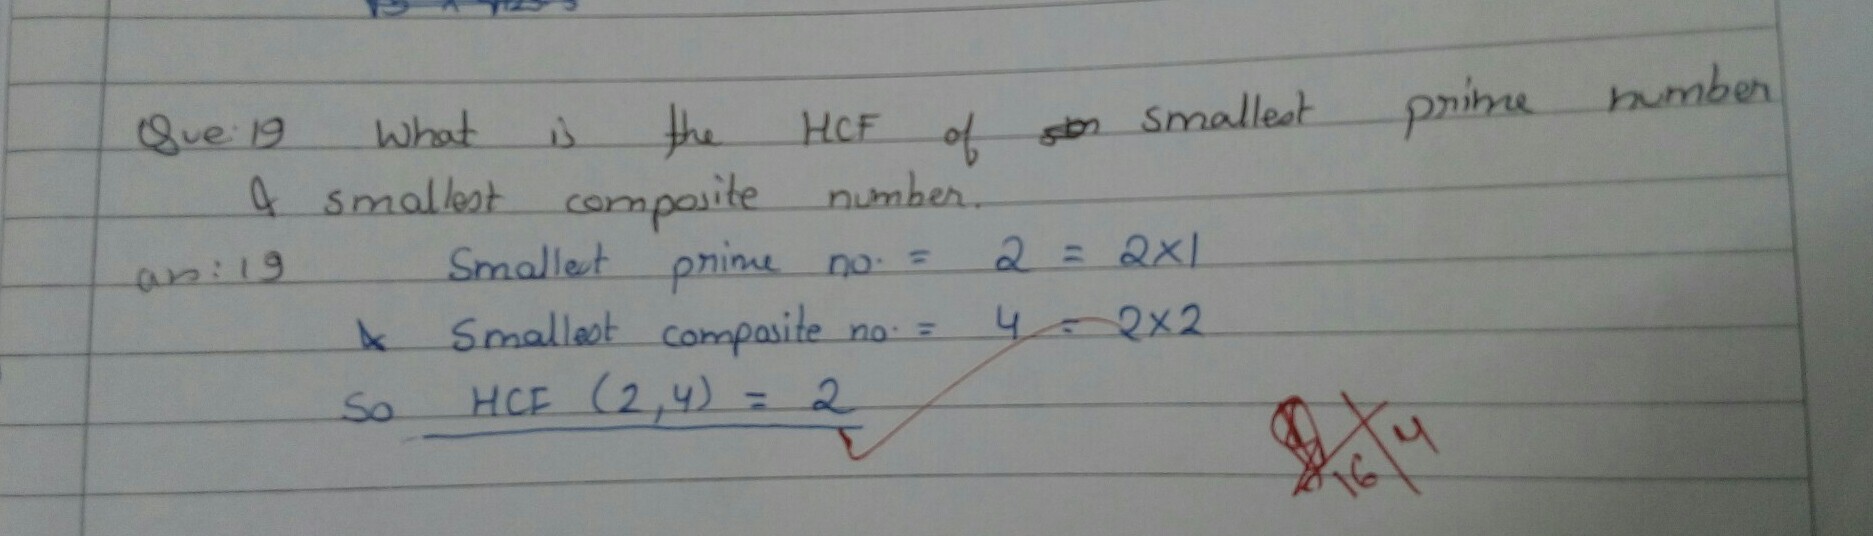 Que: 19 What is the HCF of smallest prime number
& smallest composite number.
ans: 19 Smallest prime no. = 2 = 2×1
& Smallest composite no. = 4 = 2×2
So HCF (2,4) = 2
16 4